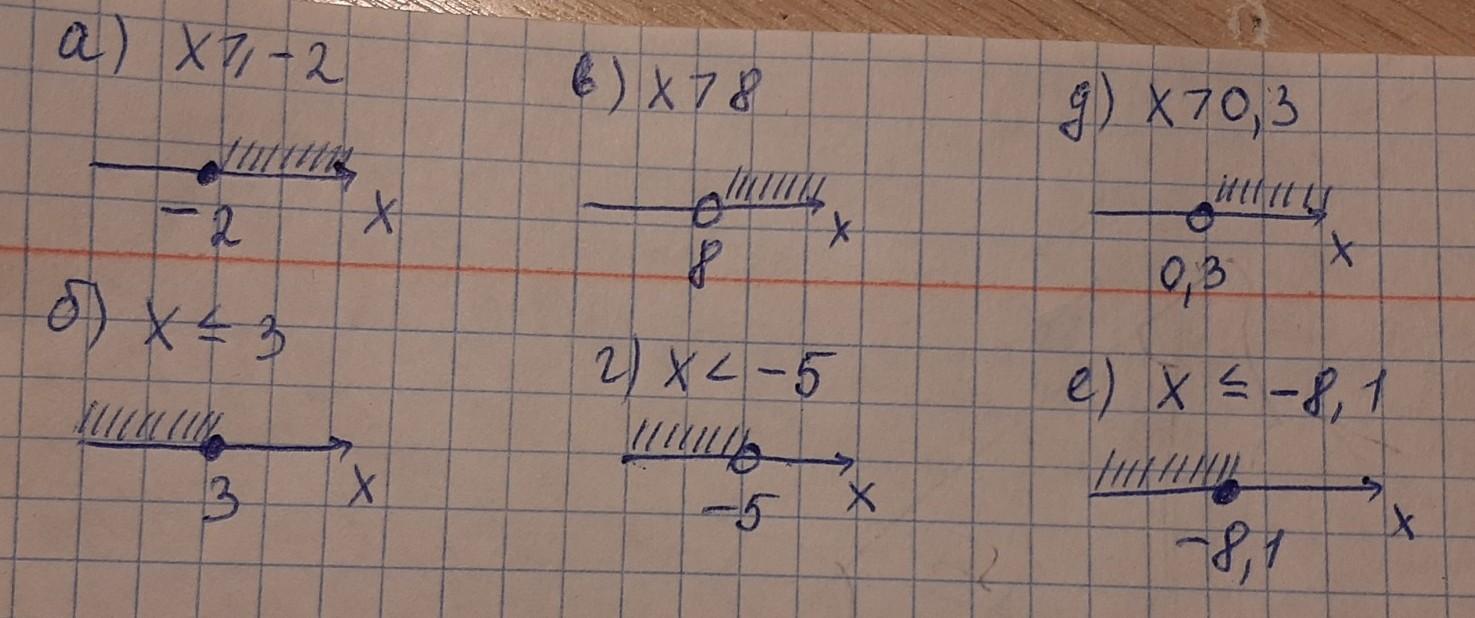 а) x ⩾ -2
-2
x
б) x ≤ 3
3
x
в) x > 8
8
x
г) x < -5
-5
x
д) x > 0,3
0,3
x
е) x ≤ -8,1
-8,1
x